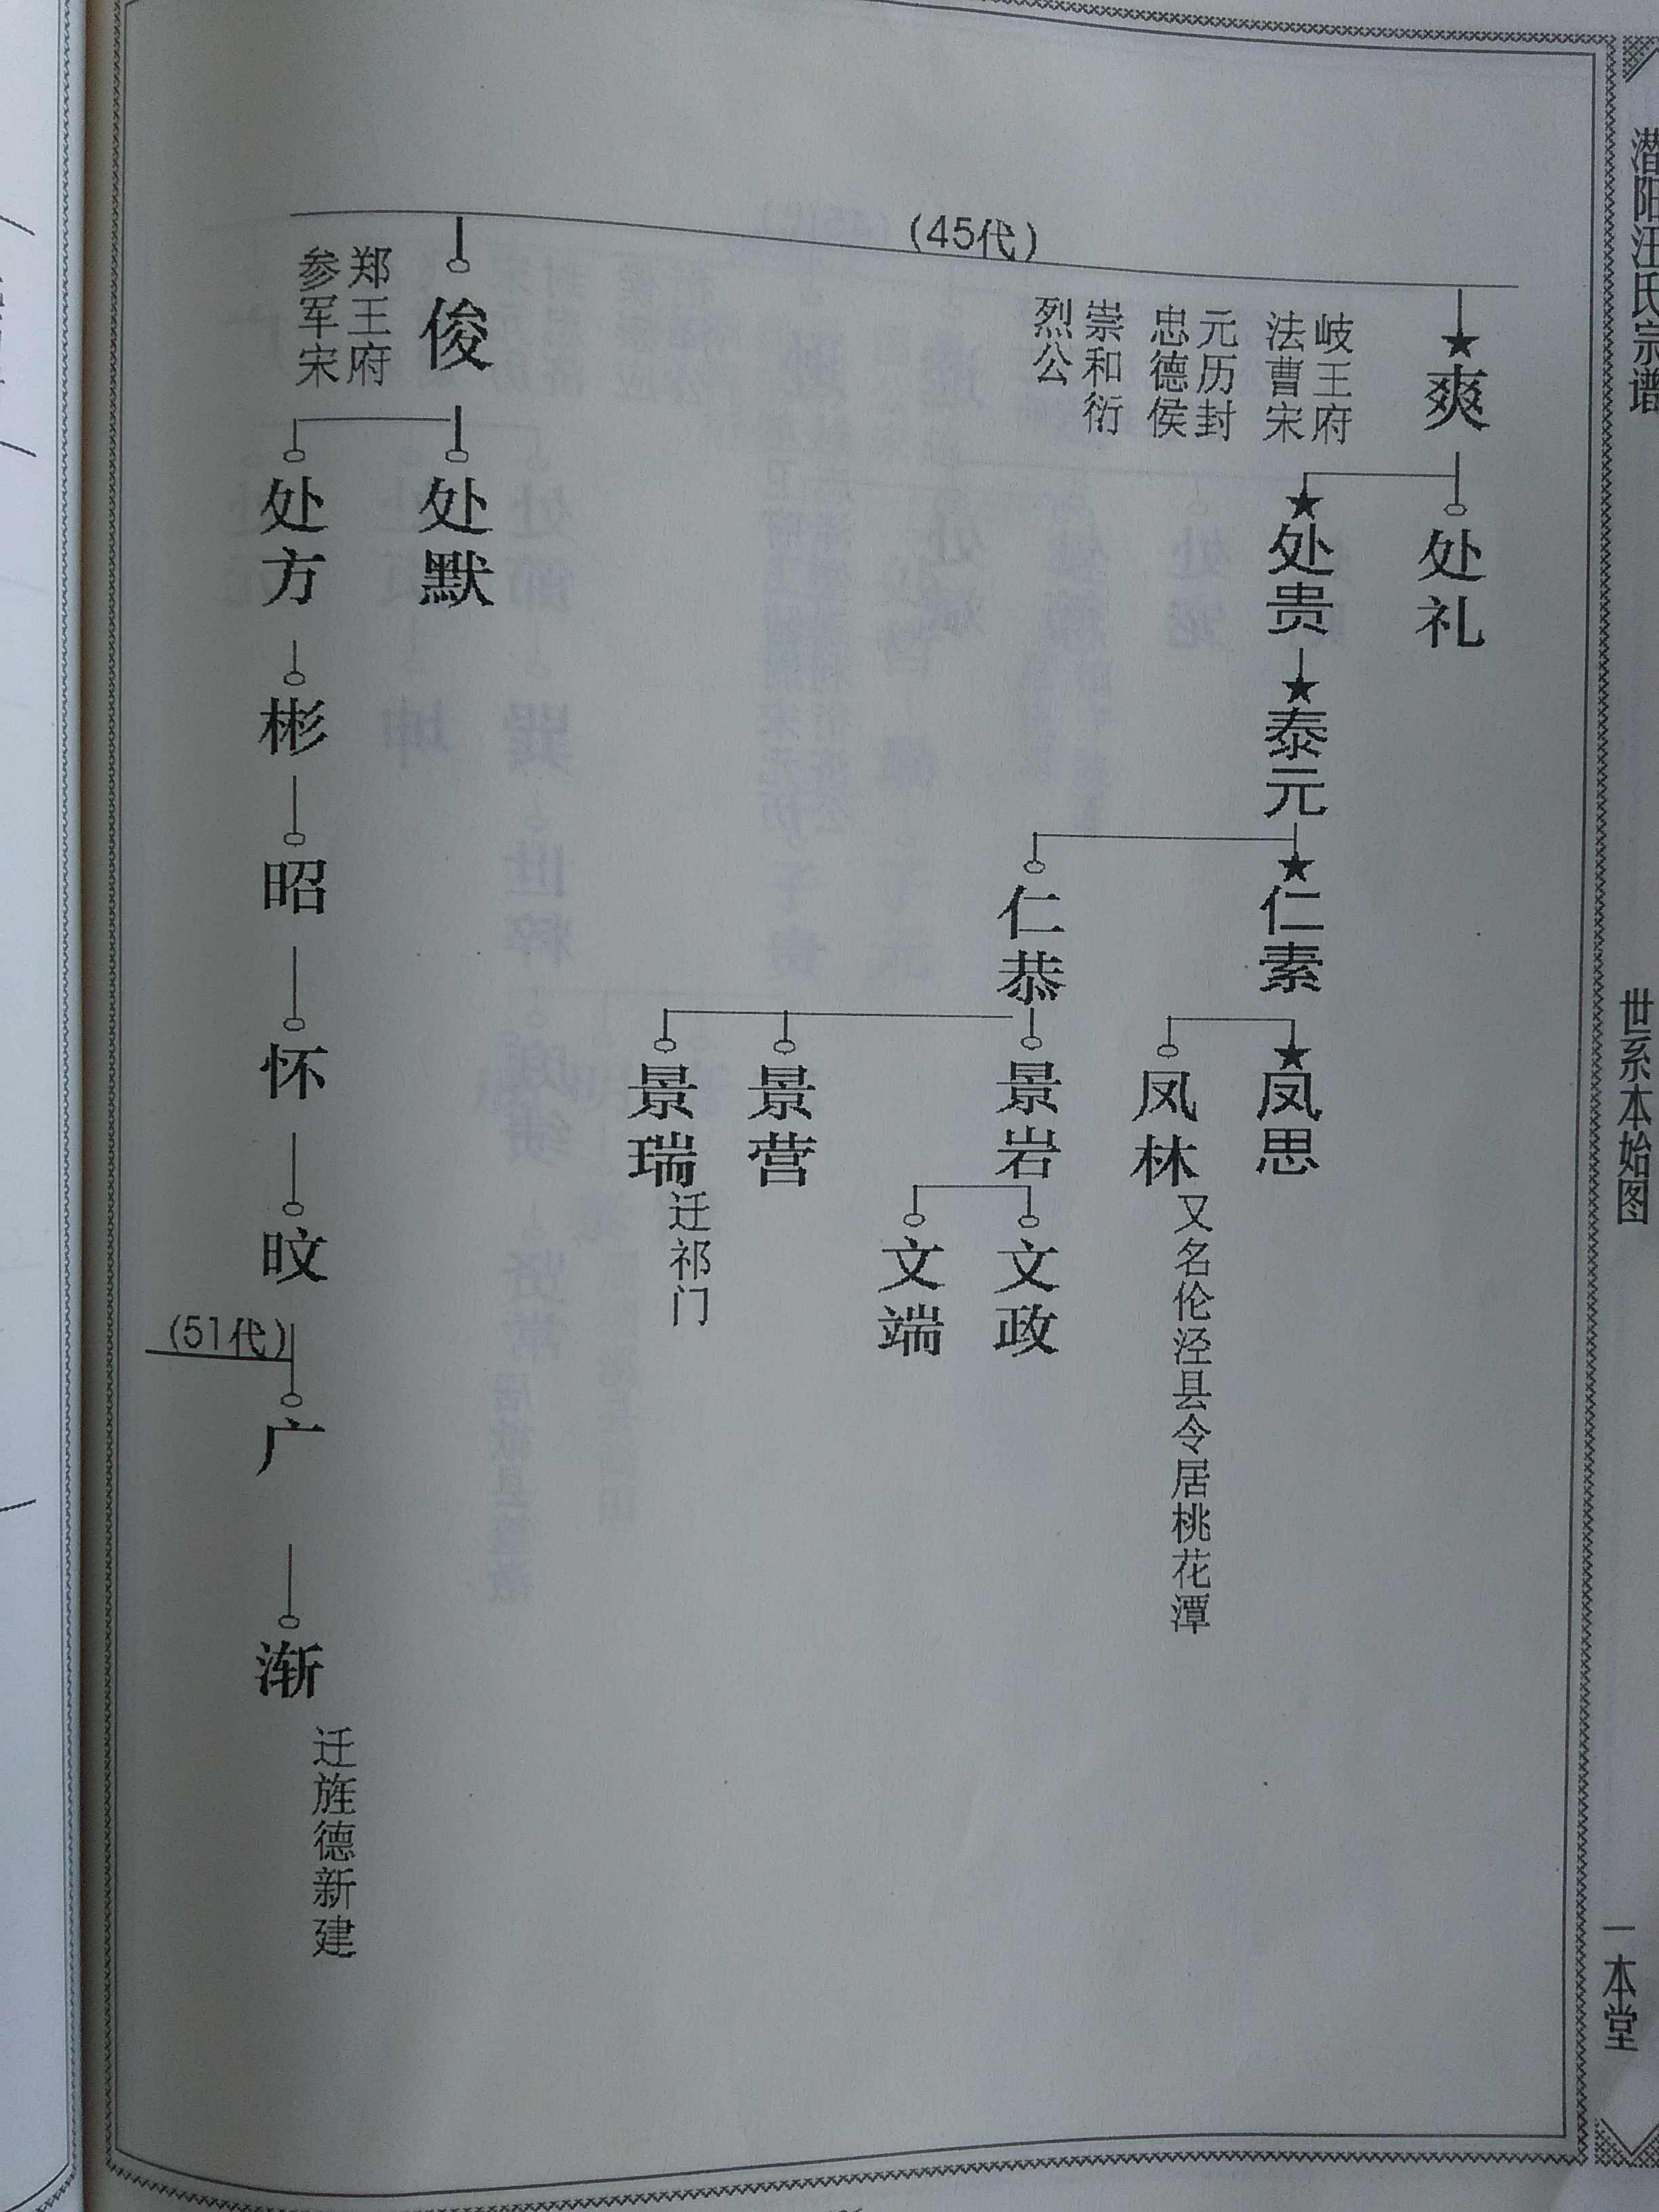 潜阳汪氏宗谱
世系本始图
一本堂
(45代)
爽
岐王府
法曹宋
元历封
忠德侯
崇和衍
烈公
俊
郑王府
参军宋
处礼
处贵
处默
处方
泰元
彬
仁素
仁恭
昭
凤思
凤林
又名伦泾县令居桃花潭
景岩
景营
景瑞
迁祁门
怀
文政
文端
旼
(51代)
广
渐
迁旌德新建